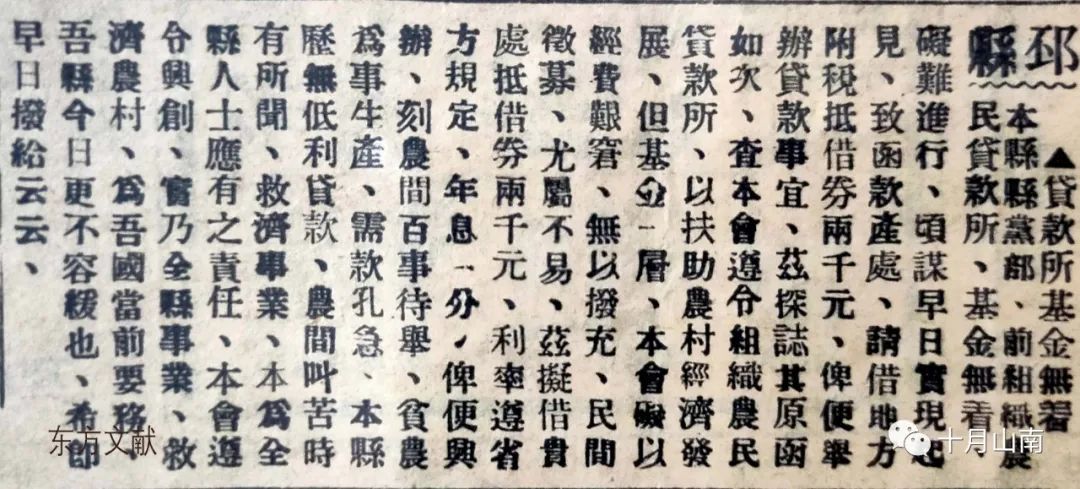 邳縣
▲貸款所基金無着
本縣縣黨部、前組織農
民貸款所、基金無着、
礙難進行、頃謀早日實現起
見、致函款產處、請借地方
附稅抵借券兩千元、俾便舉
辦貸款事宜、茲探誌其原函
如次、查本會遵令組織農民
貸款所、以扶助農村經濟發
展、但基金一層、本會礙以
經費艱窘、無以撥充、民間
徵募、尤屬不易、茲擬借貴
處抵借券兩千元、利率遵省
方規定、年息一分、俾便興
辦、刻農間百事待舉、貧農
爲事生產、需款孔急、本縣
歷無低利貸款、農間叫苦時
有所聞、救濟事業、本爲全
縣人士應有之責任、本會遵
令興創、實乃全縣事業、救
濟農村、爲吾國當前要務、
吾縣今日更不容緩也、希卽
早日撥給云云、
东方文献
十月山南